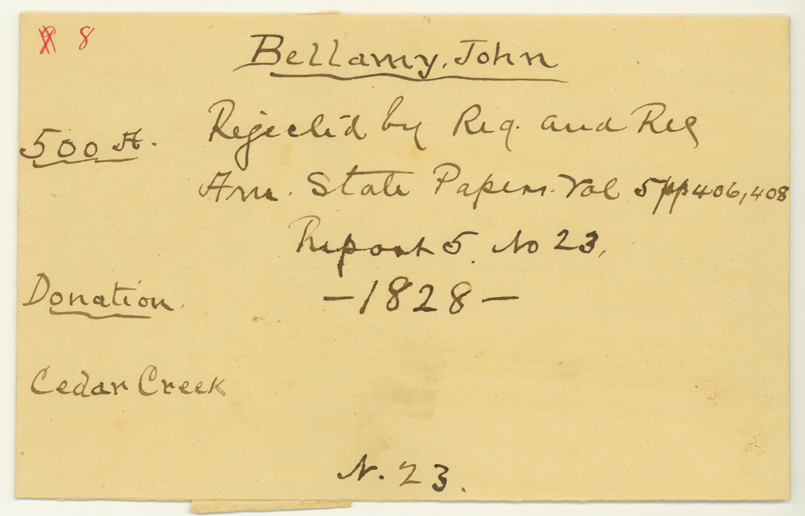 8
Bellamy, John
500 A.
Rejected by Reg. and Rec
Am. State Papers. Vol 5 pp 406, 408
Report 5. No 23.
Donation.
—1828—
Cedar Creek
N. 23.